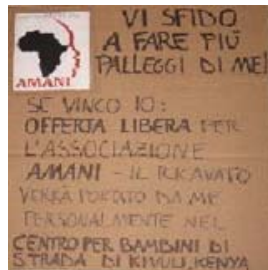 VI SFIDO
A FARE PIÙ
PALLEGGI DI ME!
AMANI
SE VINCO IO:
OFFERTA LIBERA PER
L'ASSOCIAZIONE
AMANI - IL RICAVATO
VERRÀ PORTATO DA ME
PERSONALMENTE NEL
CENTRO PER BAMBINI DI
STRADA DI KIVULI, KENYA